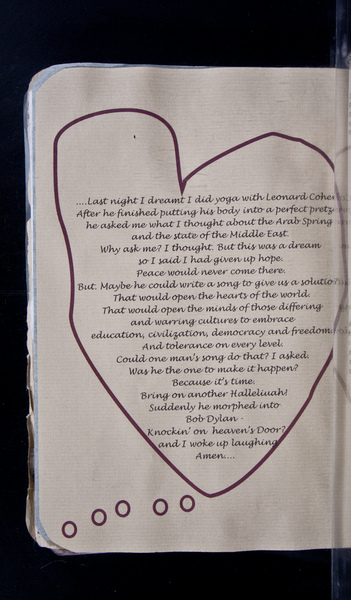 ....Last night I dreamt I did yoga with Leonard Cohen
After he finished putting his body into a perfect pretz
he asked me what I thought about the Arab Spring
and the state of the Middle East.
Why ask me? I thought. But this was a dream
so I said I had given up hope.
Peace would never come there.
But. Maybe he could write a song to give us a solutio
That would open the hearts of the world.
That would open the minds of those differing
and warring cultures to embrace
education, civilization, democracy and freedom.
And tolerance on every level.
Could one man's song do that? I asked.
Was he the one to make it happen?
Because it's time.
Bring on another Halleliuah!
Suddenly he morphed into
Bob Dylan -
Knockin' on heaven's Door?
and I woke up laughing
Amen....